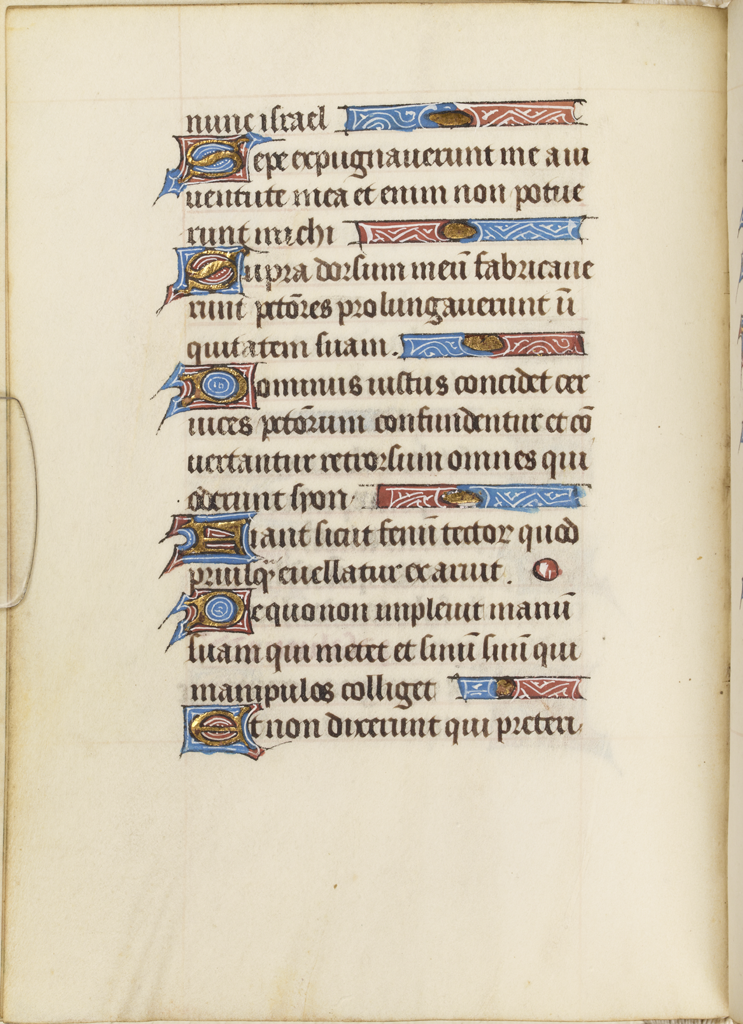 nunc israel
Sepe expugnauerunt me a iu
uentute mea et enim non potue
runt michi
Supra dorsum meū fabricaue
runt pctōres prolungauerunt ū
quitatem suam.
Dominus iustus concidet cer
uices pctōrum confundentur et cō
uertantur retrorsum omnes qui
oderunt syon
Fiant sicut fenū tector quod
priusqꝫ euellatur exaruit.
De quo non impleuit manū
suam qui metet et sinū suū qui
manipulos colliget
Et non dixerunt qui preteri